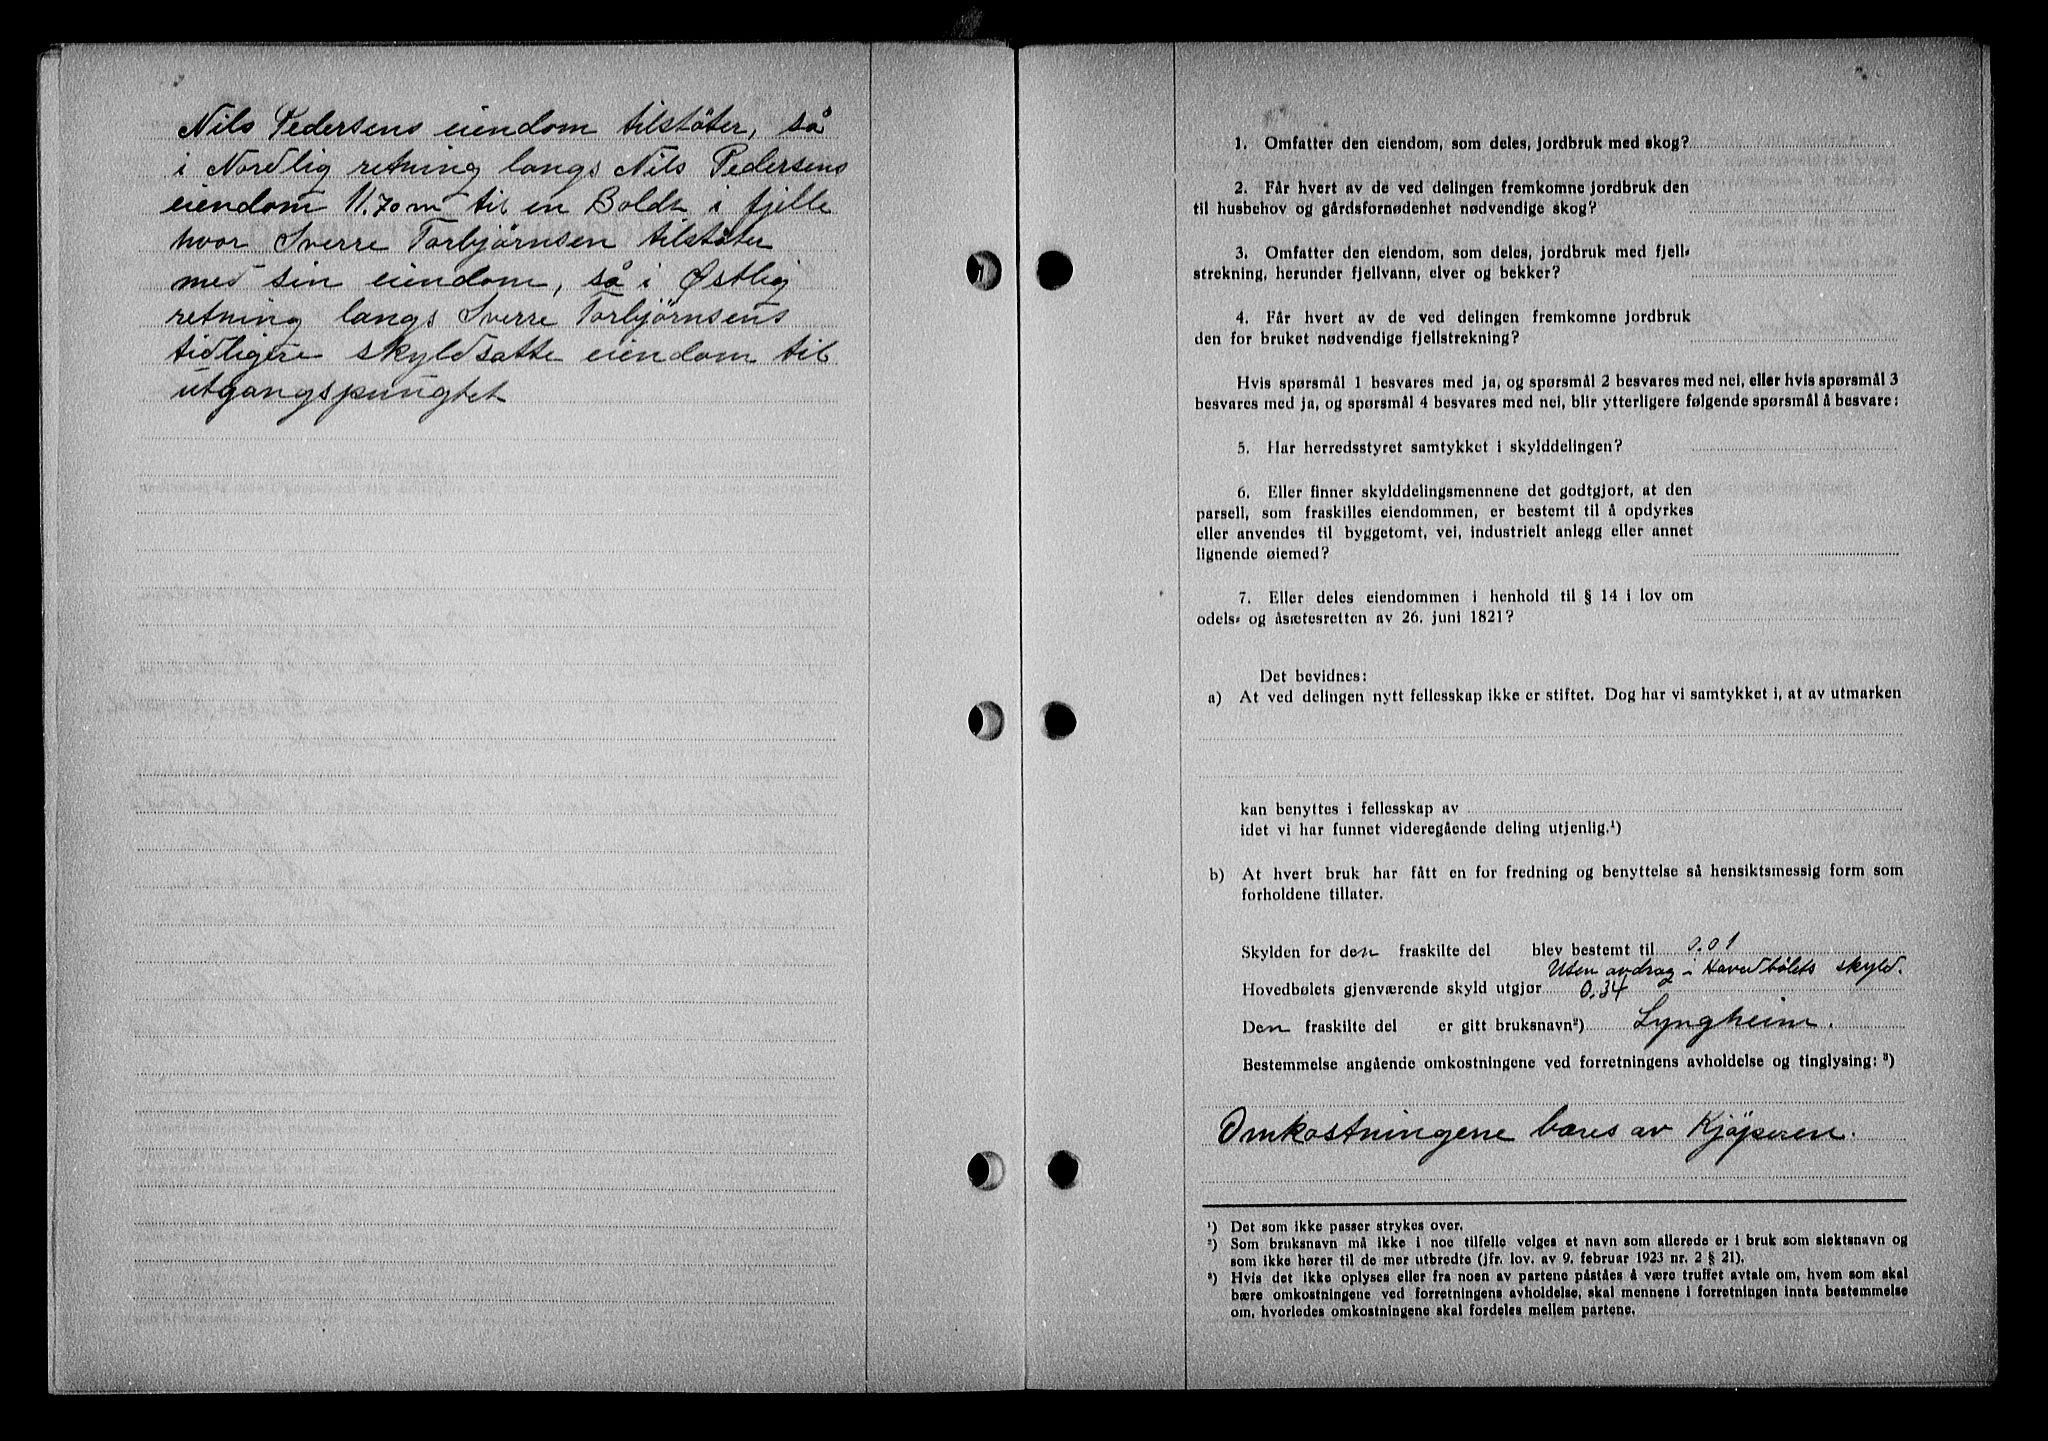 Nils Pedersens eiendom tilstöter, så
i Nordlig retning langs Nils Pedersens
eiendom 11.70 m til en Boldt i fjelle
hvor Sverre Torbjörnsen tilstöter
med sin eiendom, så i Østlig
retning langs Sverre Torbjörnsens
tidligere skyldsatte eiendom til
utgangspungtet
1. Omfatter den eiendom, som deles, jordbruk med skog?
2. Får hvert av de ved delingen fremkomne jordbruk den
til husbehov og gårdsfornødenhet nødvendige skog?
3. Omfatter den eiendom, som deles, jordbruk med fjell-
strekning, herunder fjellvann, elver og bekker?
4. Får hvert av de ved delingen fremkomne jordbruk
den for bruket nødvendige fjellstrekning?
Hvis spørsmål 1 besvares med ja, og spørsmål 2 besvares med nei, eller hvis spørsmål 3
besvares med ja, og spørsmål 4 besvares med nei, blir ytterligere følgende spørsmål å besvare:
5. Har herredsstyret samtykket i skylddelingen?
6. Eller finner skylddelingsmennene det godtgjort, at den
parsell, som fraskilles eiendommen, er bestemt til å opdyrkes
eller anvendes til byggetomt, vei, industrielt anlegg eller annet
lignende øiemed?
7. Eller deles eiendommen i henhold til § 14 i lov om
odels- og åsætesretten av 26. juni 1821?
Det bevidnes:
a) At ved delingen nytt fellesskap ikke er stiftet. Dog har vi samtykket i, at av utmarken
kan benyttes i fellesskap av
idet vi har funnet videregående deling utjenlig.¹)
b) At hvert bruk har fått en for fredning og benyttelse så hensiktsmessig form som
forholdene tillater.
Skylden for den fraskilte del blev bestemt til 0.01
Uten avdrag i Havedbølets skyld.
Hovedbølets gjenværende skyld utgjør 0.34
Den fraskilte del er gitt bruksnavn²) Lyngheim.
Bestemmelse angående omkostningene ved forretningens avholdelse og tinglysing: ³)
Omkostningene bæres av Kjöperen.
¹) Det som ikke passer strykes over.
²) Som bruksnavn må ikke i noe tilfelle velges et navn som allerede er i bruk som slektsnavn og
som ikke hører til de mer utbredte (jfr. lov. av 9. februar 1923 nr. 2 § 21).
³) Hvis det ikke oplyses eller fra noen av partene påståes å være truffet avtale om, hvem som skal
bære omkostningene ved forretningens avholdelse, skal mennene i forretningen innta bestemmelse
om, hvorledes omkostningene skal fordeles mellem partene.